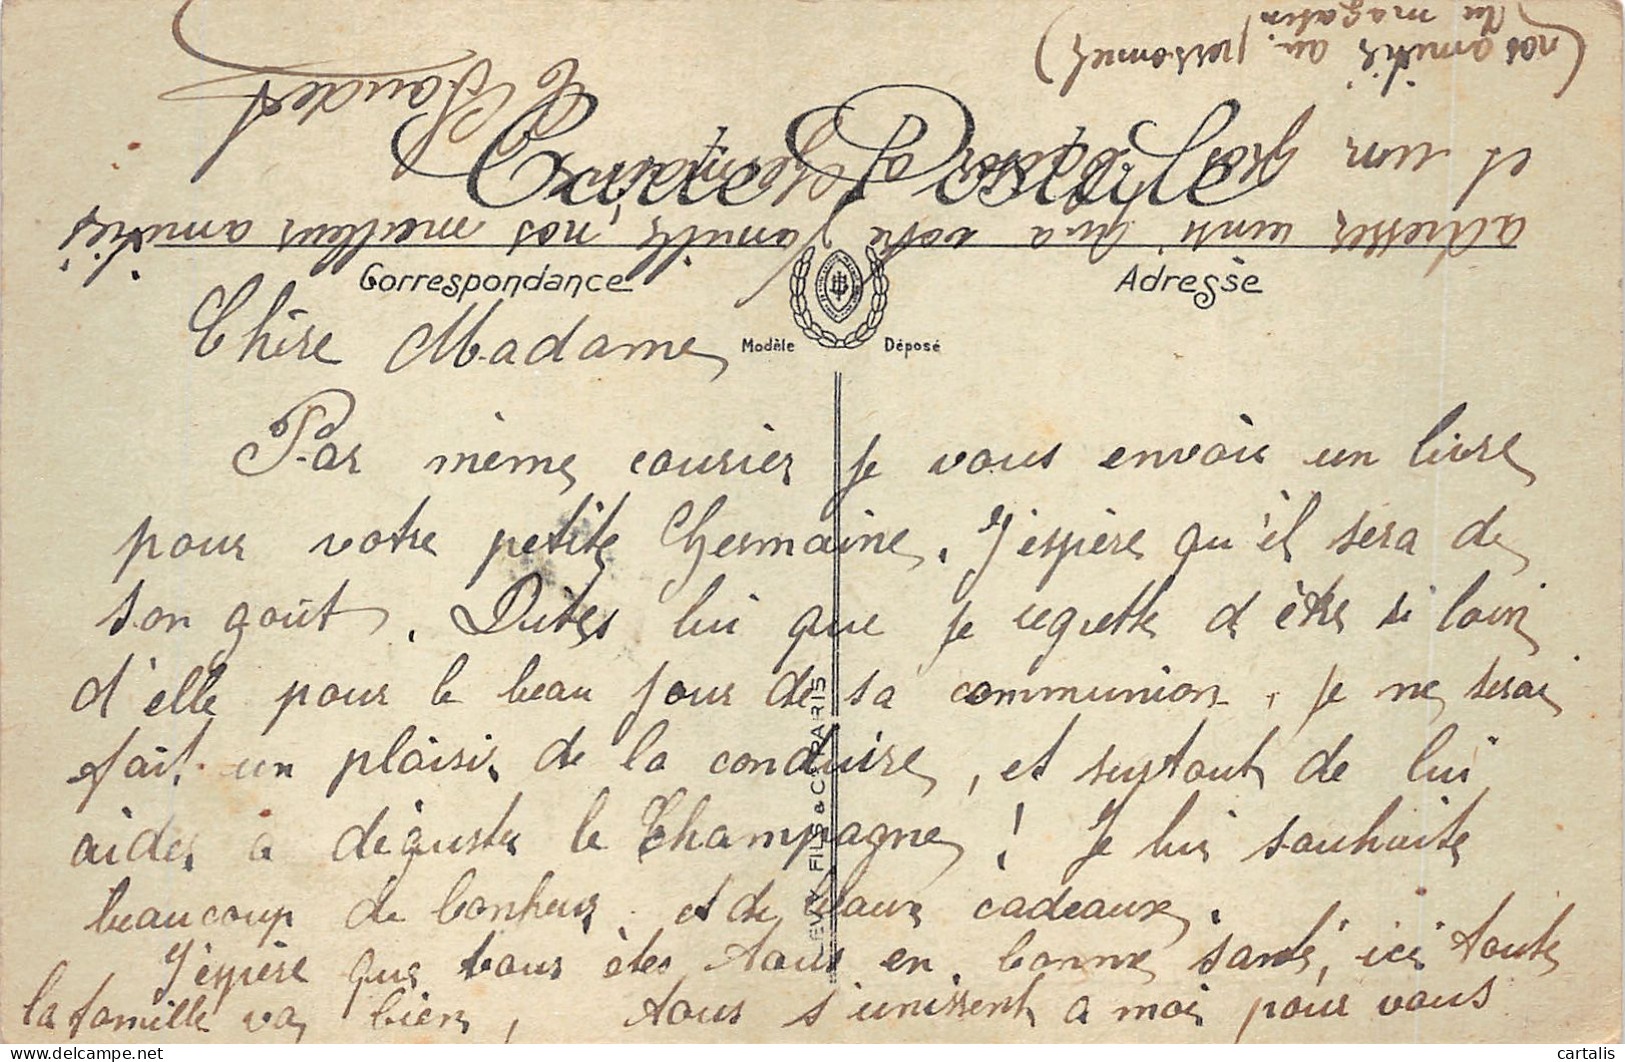 Carte Postale
Correspondance
Adresse
Modèle
Déposé
LEVY FILS & Cie PARIS
Chère Madame
Par même courier je vous envoie un livre
pour votre petite Germaine. J'espère qu'il sera de
son goût. Dites lui que je regrette d'être si loin
d'elle pour le beau jour de sa communion. Je me serai
fait un plaisir de la conduire, et surtout de lui
aider à déguster le Champagne! Je lui souhaite
beaucoup de bonheur et de beaux cadeaux.
J'espère que vous êtes tous en bonne santé, ici toute
la famille va bien, tous s'unissent à moi pour vous
adresser ainsi qu'a votre famille, nos meilleurs amitiés
et un gros baiser à Germaine
(nos amitiés au personnel
du magasin)
cartalis